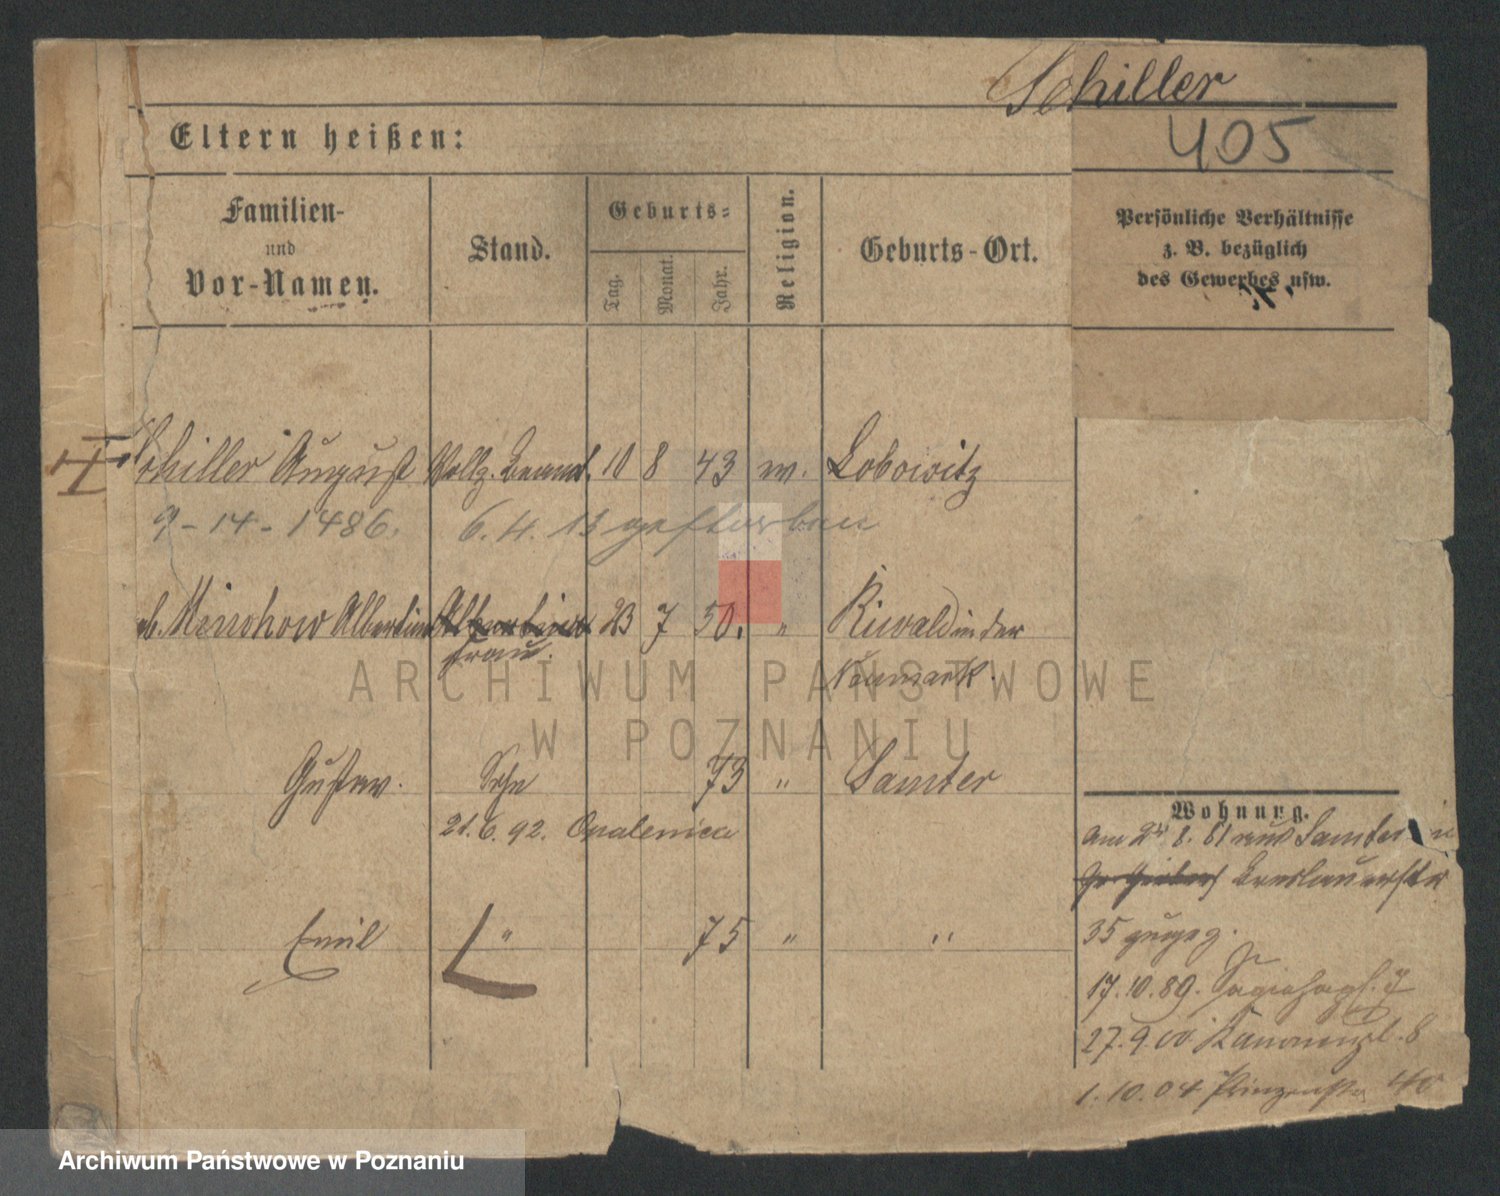 Schiller
405
Eltern heißen:
Familien-
und
Vor-Namen.
Stand.
Geburts-
Tag.
Monat.
Jahr.
Religion.
Geburts-Ort.
Persönliche Verhältnisse
z. B. bezüglich
des Gewerbes usw.
II
Schiller August Vollz. Beamt. 10 8 43 ev. Lobowitz
9-14-1486. 6.4.13 gestorben
geb. Minchow Albertine 23 7 50. "
Frau.
in der
Neumark.
Gustav. Sohn 73 " Samter
21.6.92. Opalenica
Emil " 75 " "
Wohnung.
Am 8. 81 aus Samter
Breslauerstr
35 zugez.
17.10.89. 7
27.9.00 Kanonenpl. 8
1.10.04 Prinzenstr 40
ARCHIWUM PAŃSTWOWE
W POZNANIU
Archiwum Państwowe w Poznaniu